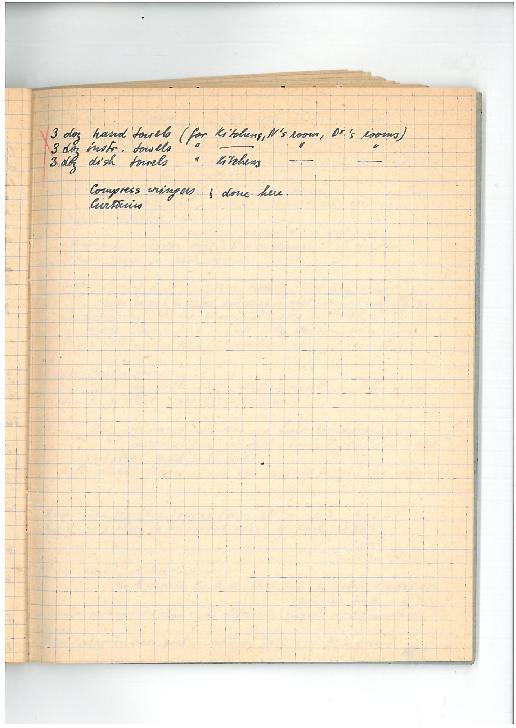 3 doz hand towels (for Kitchens, N's room, Dr.'s rooms)
3 doz instr. towels " —— " "
3 doz dish towels " Kitchens —— ——
Compress wringers } done here.
Curtains